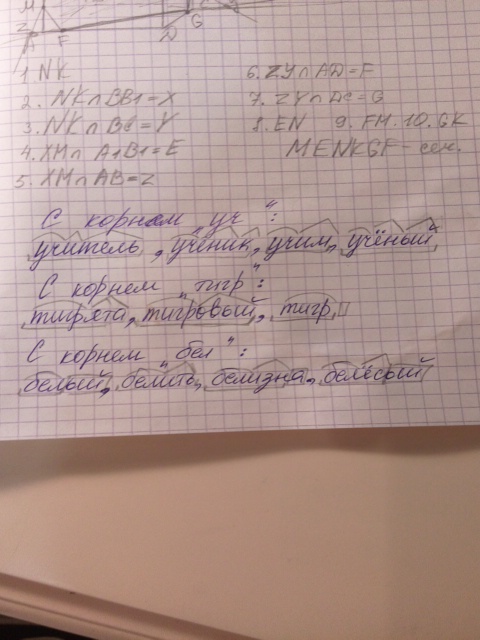 M
Z
A F
N G
1. NK
6. ZY∩AD=F
2. NK∩BB1=X
7. ZY∩DC=G
3. NK∩BC=Y
8. EN 9. FM. 10. GK
4. XM∩A1B1=E
MENKGF - сеч.
5. XM∩AB=Z
С корнем „уч“:
учитель, ученик, учим, учёный
С корнем „тигр“:
тигрята, тигровый, тигр,
С корнем „бел“:
белый, белить, белизна, белёсый